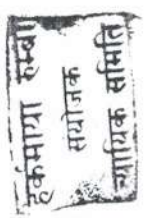 हर्कमाया रुम्बा
संयोजक
न्यायिक समिति